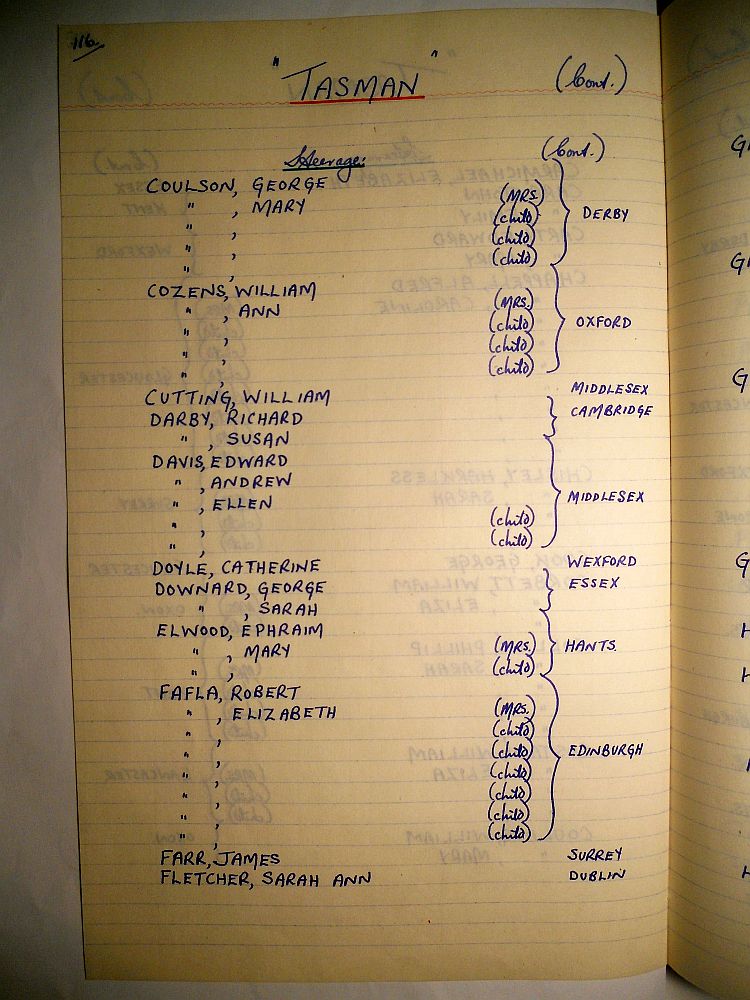 116
"TASMAN" (Cont.)
Steerage: (Cont.)
COULSON, GEORGE
" , MARY (MRS.)
" , (child) DERBY
" , (child)
" , (child)
COZENS, WILLIAM
" , ANN (MRS.)
" , (child) OXFORD
" , (child)
" , (child)
CUTTING, WILLIAM MIDDLESEX
DARBY, RICHARD CAMBRIDGE
" , SUSAN
DAVIS, EDWARD
" , ANDREW
" , ELLEN MIDDLESEX
" , (child)
" , (child)
DOYLE, CATHERINE WEXFORD
DOWNARD, GEORGE ESSEX
" , SARAH
ELWOOD, EPHRAIM
" , MARY (MRS.) HANTS.
" , (child)
FAFLA, ROBERT
" , ELIZABETH (MRS.)
" , (child)
" , (child) EDINBURGH
" , (child)
" , (child)
" , (child)
" , (child)
FARR, JAMES SURREY
FLETCHER, SARAH ANN DUBLIN